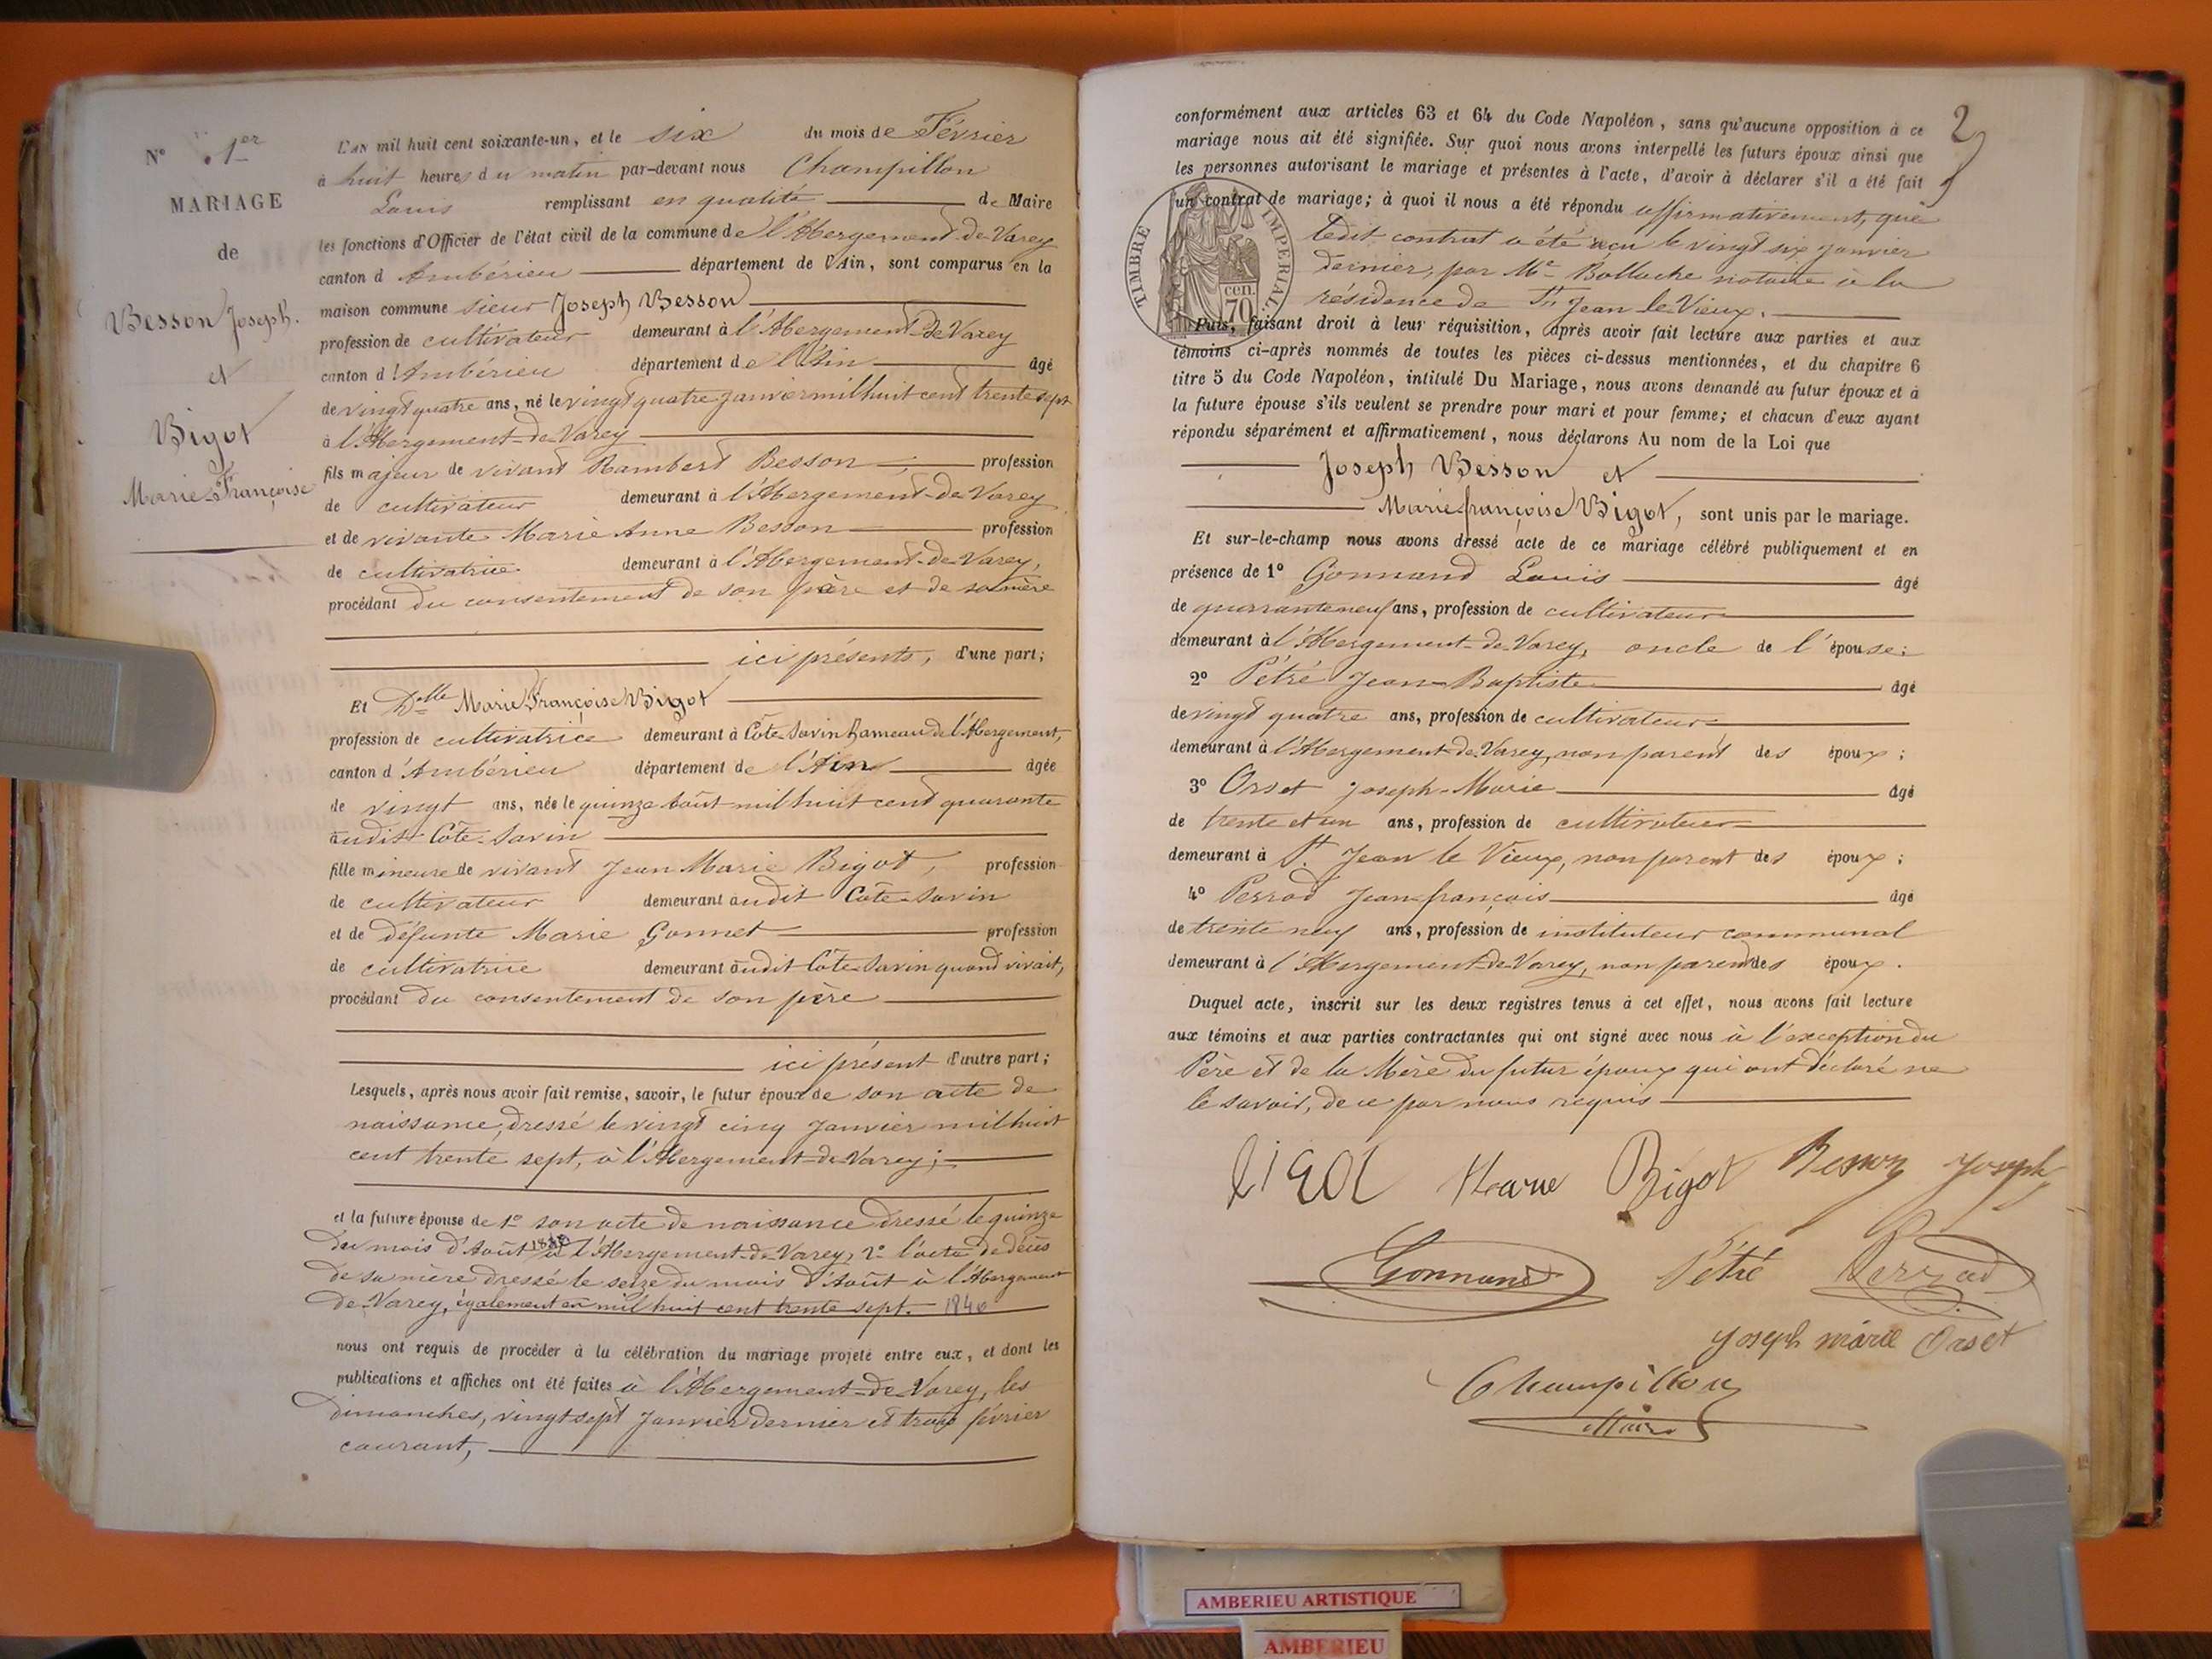 N° 1er
MARIAGE
de
Besson Joseph.
et
Bigot
Marie Françoise
L'AN mil huit cent soixante-un, et le six du mois de Février
à huit heures du matin par-devant nous Champillon
Louis remplissant en qualité de Maire
les fonctions d'Officier de l'état civil de la commune de l'Abergement-de-Varey
canton d Ambérieu département de l'Ain, sont comparus en la
maison commune sieur Joseph Besson
profession de cultivateur demeurant à l'Abergement-de-Varey
canton d'Ambérieu département de l'Ain âgé
de vingt quatre ans, né le vingt quatre janvier mil huit cent trente sept
à l'Abergement-de-Varey
fils majeur de vivant Rambert Besson profession
de cultivateur demeurant à l'Abergement-de-Varey
et de vivante Marie Anne Besson profession
de cultivatrice demeurant à l'Abergement-de-Varey,
procédant du consentement de son père et de sa mère
ici présents, d'une part;
Et Dlle Marie Françoise Bigot
profession de cultivatrice demeurant à Côte-Savin hameau de l'Abergement,
canton d'Ambérieu département de l'Ain âgée
de vingt ans, née le quinze Août mil huit cent quarante
audit Côte-Savin
fille mineure de vivant Jean Marie Bigot, profession
de cultivateur demeurant audit Côte-Savin
et de défunte Marie Gonnet profession
de cultivatrice demeurant audit Côte-Savin quand vivait,
procédant du consentement de son père
ici présent d'autre part;
Lesquels, après nous avoir fait remise, savoir, le futur époux de son acte de
naissance, dressé le vingt cinq Janvier mil huit
cent trente sept, à l'Abergement-de-Varey;
et la future épouse de 1° son acte de naissance dressé le quinze
du mois d'Août 1840 à l'Abergement-de-Varey, 2° l'acte de décès
de sa mère dressé le seize du mois d'Août à l'Abergement
de-Varey, également en mil huit cent trente sept. 1840
nous ont requis de procéder à la célébration du mariage projeté entre eux, et dont les
publications et affiches ont été faites à l'Abergement-de-Varey, les
dimanches, vingt sept Janvier dernier et trois février
courant,
2
conformément aux articles 63 et 64 du Code Napoléon, sans qu'aucune opposition à ce
mariage nous ait été signifiée. Sur quoi nous avons interpellé les futurs époux ainsi que
les personnes autorisant le mariage et présentes à l'acte, d'avoir à déclarer s'il a été fait
un contrat de mariage; à quoi il nous a été répondu affirmativement, que
ledit contrat a été reçu le vingt six janvier
dernier, par Me Bollache notaire à la
résidence de St Jean le Vieux.
TIMBRE IMPERIAL
70 cen
Puis, faisant droit à leur réquisition, après avoir fait lecture aux parties et aux
témoins ci-après nommés de toutes les pièces ci-dessus mentionnées, et du chapitre 6
titre 5 du Code Napoléon, intitulé Du Mariage, nous avons demandé au futur époux et à
la future épouse s'ils veulent se prendre pour mari et pour femme; et chacun d'eux ayant
répondu séparément et affirmativement, nous déclarons Au nom de la Loi que
Joseph Besson et
Marie françoise Bigot, sont unis par le mariage.
Et sur-le-champ nous avons dressé acte de ce mariage célébré publiquement et en
présence de 1° Gonnand Louis âgé
de quarante neuf ans, profession de cultivateur
demeurant à l'Abergement-de-Varey, oncle de l'épouse;
2° Pétré Jean-Baptiste âgé
de vingt quatre ans, profession de cultivateur
demeurant à l'Abergement-de-Varey, non parent des époux;
3° Orset Joseph-Marie âgé
de trente et un ans, profession de cultivateur
demeurant à St Jean le Vieux, non parent des époux;
4° Perrod Jean françois âgé
de trente neuf ans, profession de instituteur communal
demeurant à l'Abergement-de-Varey, non parent des époux.
Duquel acte, inscrit sur les deux registres tenus à cet effet, nous avons fait lecture
aux témoins et aux parties contractantes qui ont signé avec nous à l'exception du
Père et de la Mère du futur époux qui ont déclaré ne
le savoir, de ce par nous requis
Bigot Besson Joseph
Gonnand Pétré Perrod
Joseph marie Orset
Champillon
Maire
AMBERIEU ARTISTIQUE
AMBERIEU